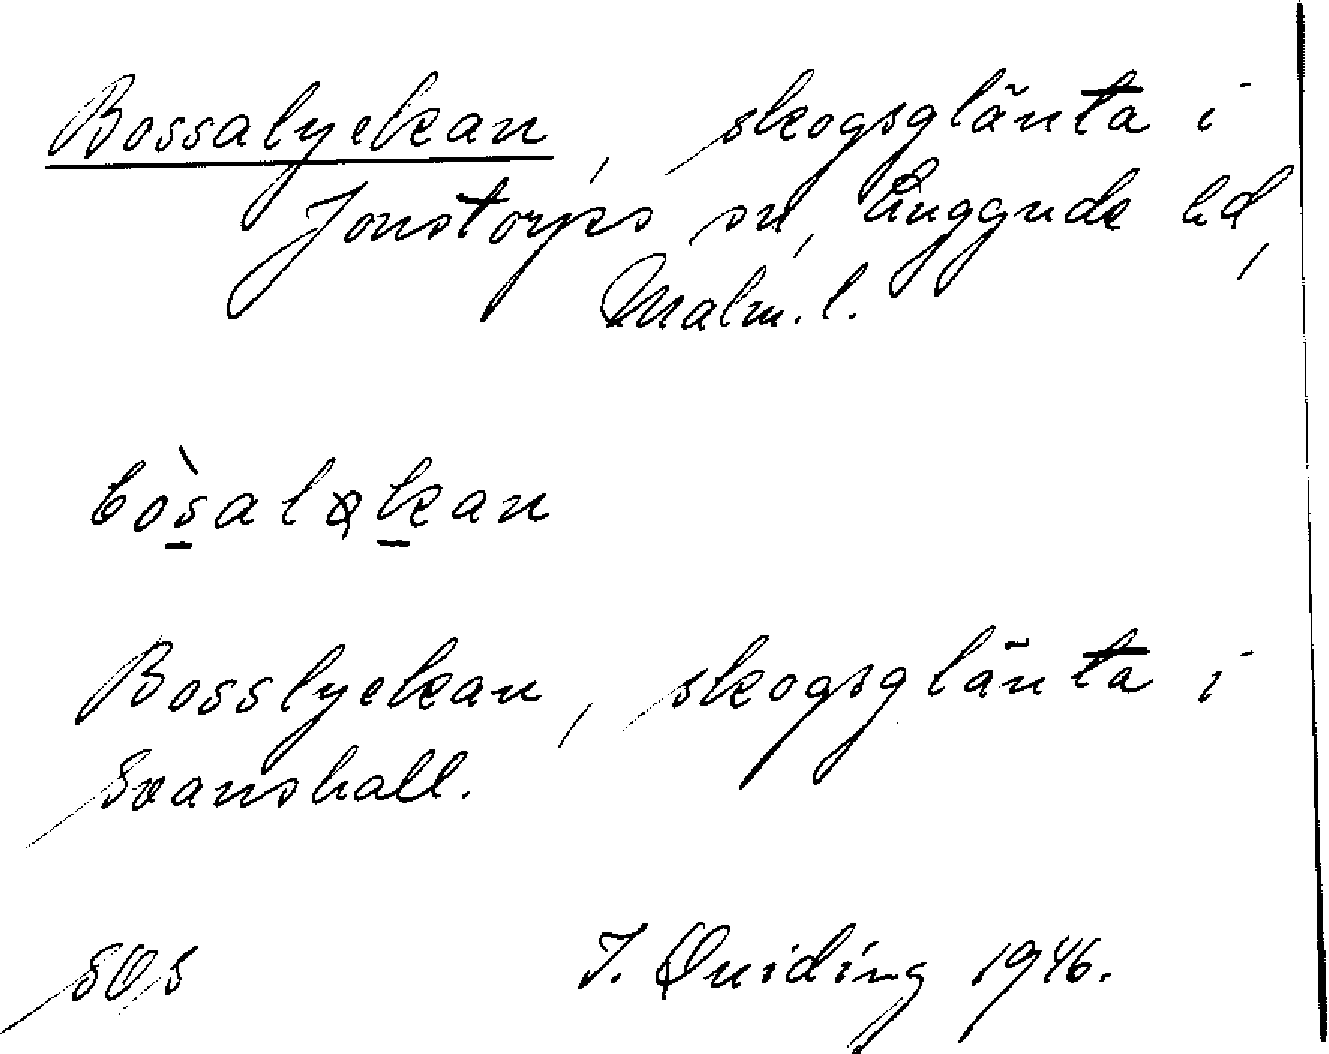 Bossalyckan, skogsglänta i
Jonstorps sn, Luggude hd,
Malm. l.
Bosslyckan, skogsglänta i
Svanshall.
I. Quiding 1946.